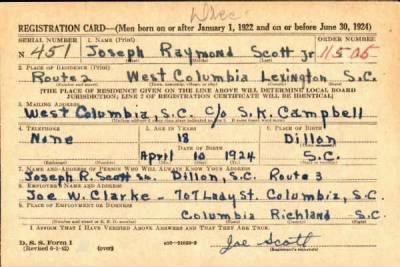 REGISTRATION CARD—(Men born on or after January 1, 1922 and on or before June 30, 1924)
SERIAL NUMBER 1. NAME (Print) ORDER NUMBER
N 451 Joseph Raymond Scott Jr 11505
2. PLACE OF RESIDENCE (Print)
Route 2 West Columbia Lexington S.C.
[THE PLACE OF RESIDENCE GIVEN ON THE LINE ABOVE WILL DETERMINE LOCAL BOARD
JURISDICTION; LINE 2 OF REGISTRATION CERTIFICATE WILL BE IDENTICAL]
3. MAILING ADDRESS
West Columbia, S.C. c/o S.K. Campbell
4. TELEPHONE 5. AGE IN YEARS 6. PLACE OF BIRTH
None 18 Dillon
DATE OF BIRTH
April 10 1924 S.C.
7. NAME AND ADDRESS OF PERSON WHO WILL ALWAYS KNOW YOUR ADDRESS
Joseph R. Scott Sr. Dillon, S.C. Route 3
8. EMPLOYER'S NAME AND ADDRESS
Joe W. Clarke - 707 Lady St. Columbia, S.C.
9. PLACE OF EMPLOYMENT OR BUSINESS
Columbia Richland S.C.
I AFFIRM THAT I HAVE VERIFIED ABOVE ANSWERS AND THAT THEY ARE TRUE.
D. S. S. Form 1
(Revised 6-1-42) (over)
Joe Scott